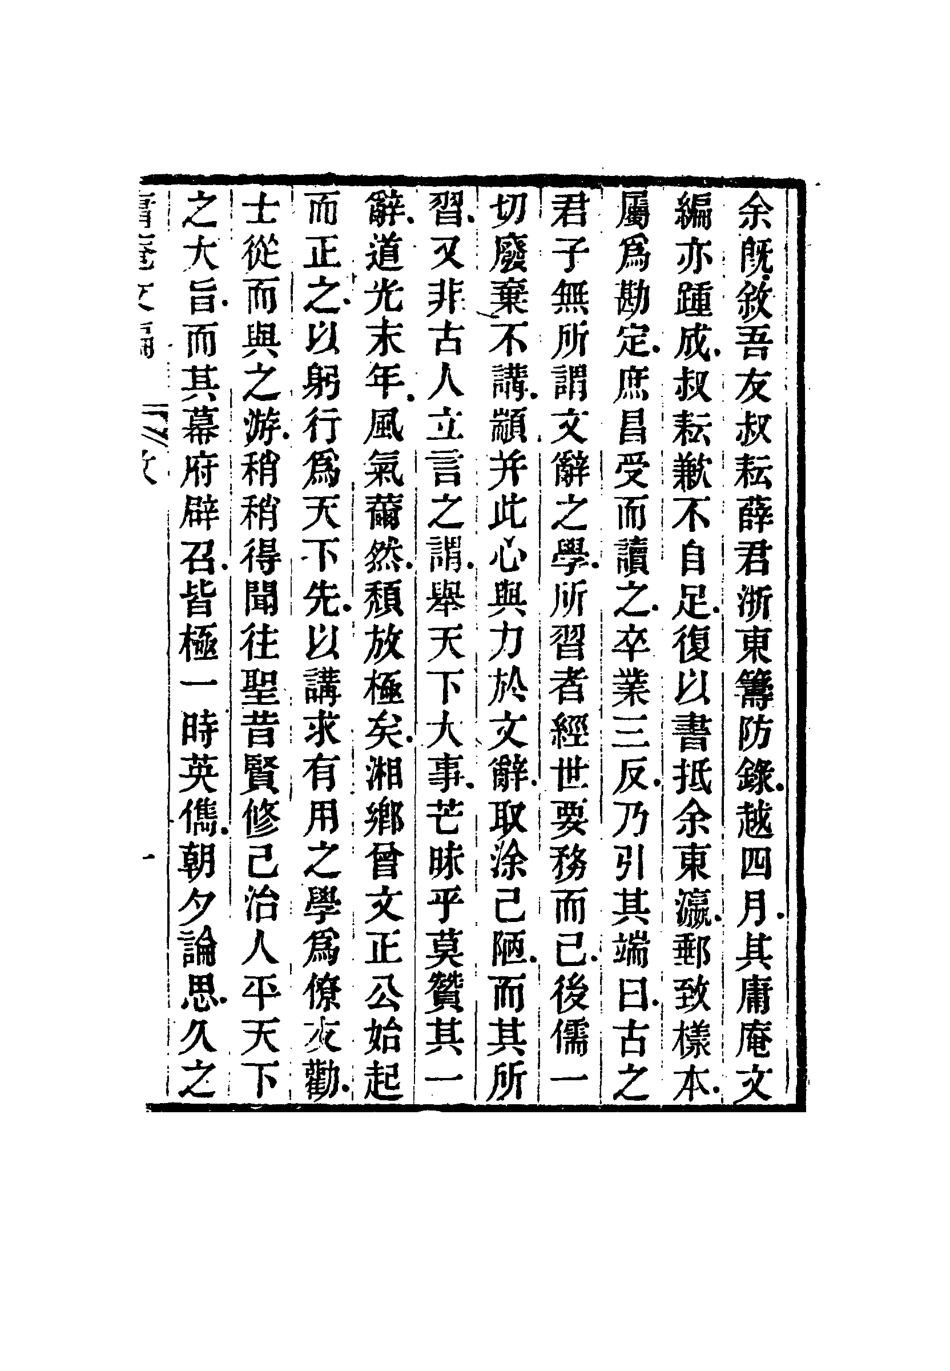 余既敘吾友叔耘薛君浙東籌防錄越四月其庸庵文
編亦踵成叔耘歉不自足復以書抵余東瀛郵致樣本
屬爲勘定庶昌受而讀之卒業三反乃引其端曰古之
君子無所謂文辭之學所習者經世要務而已後儒一
切廢棄不講顓并此心與力於文辭取塗己陋而其所
習又非古人立言之謂舉天下大事芒昧乎莫贊其一
辭道光末年風氣薾然頹放極矣湘鄉曾文正公始起
而正之以躬行爲天下先以講求有用之學爲僚友勸
士從而與之游稍稍得聞往聖昔賢修己治人平天下
之大旨而其幕府辟召皆極一時英儁朝夕論思久之
庸庵文編 敘 一